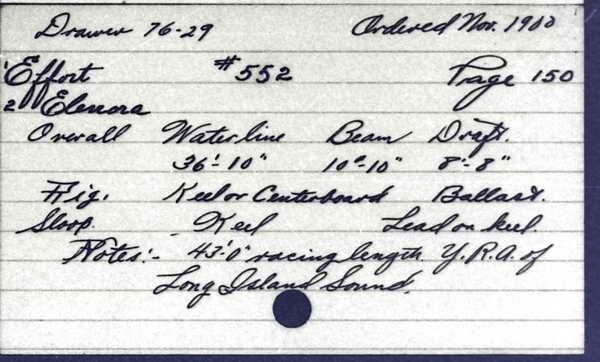 Drawer 76-29 Ordered Nov. 1900
1 Effort #552 Page 150
2 Elenora
Overall Waterline Beam Draft.
36'-10" 10'-10" 8'-8"
Rig. Keel or Centerboard Ballast.
Sloop. Keel Lead on keel.
Notes:- 43'-0" racing length Y.R.A. of
Long Island Sound.